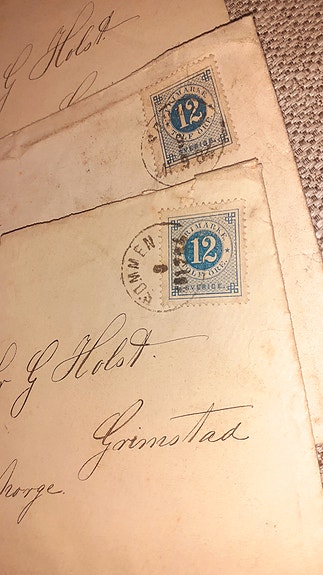 G Holst
FRIMARKE
12
TOLF ÖRE
SVERIGE
FRIMARKE
12
TOLF ÖRE
SVERIGE
KOMMEN
9
G Holst.
Grimstad
Norge.